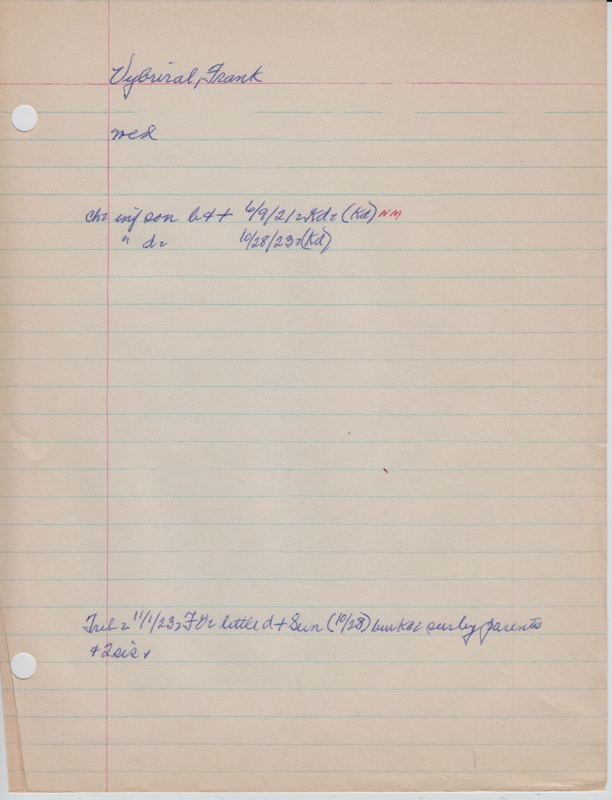 Vybiral, Frank
med
ch= inf son b & + 6/9/21 = Kd = (Kd) NM
" d = 10/28/23 = (Kd)
Trib = 11/1/23 = F & = little d + Sun (10/28) bur Kdc sur by parents
& 2 sis